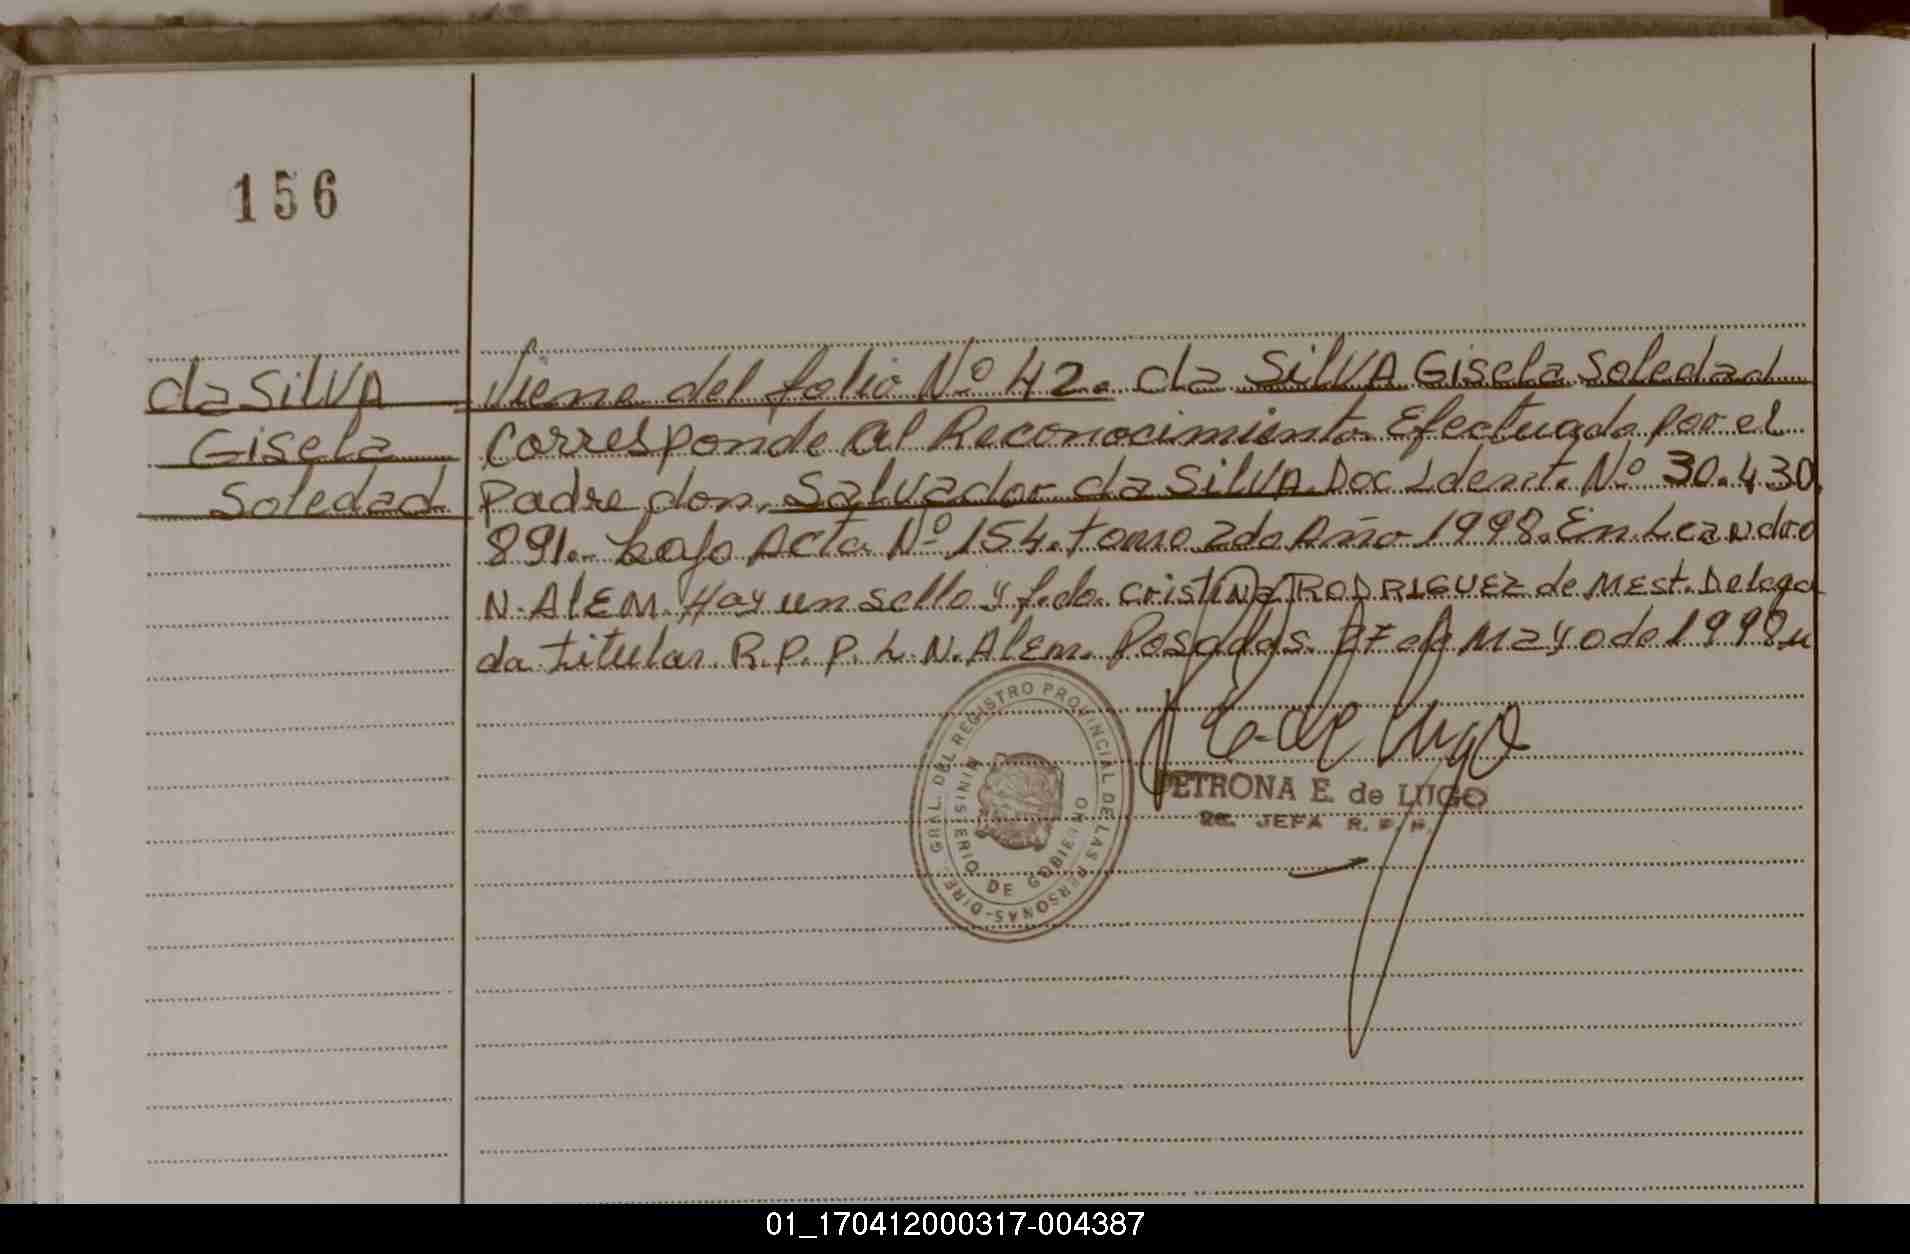 156
da SilVA
Gisela
Soledad
Viene del folio Nº 42. da SilVA Gisela Soledad
Corresponde al Reconocimiento Efectuado por el
padre don. Salvador da SilVA. Doc Ident. Nº 30.430.
891.- bajo Acta Nº 154. tomo 2do Año 1998. En Leandro
N. AlEM. Hay un sello y f.do. cristina RODRIGUEZ de MEst. Delega
da titular R.P.P. L.N. Alem. Posadas. 27 de Mayo de 1998
PETRONA E. de LUGO
JEFA R.P.P.
DIRE. GRAL. DEL REGISTRO PROVINCIAL DE LAS PERSONAS-
MINISTERIO DE GOBIERNO
01_170412000317-004387